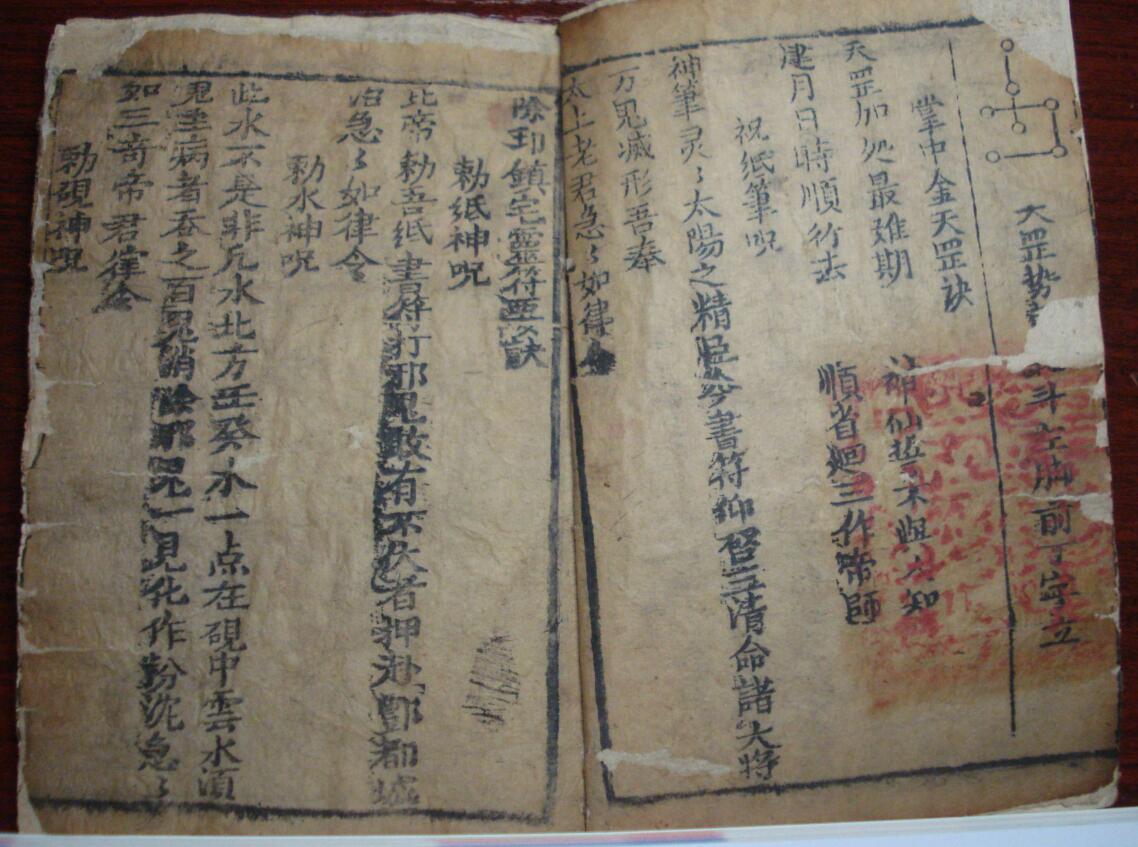 大罡势 斗 前丁字立
掌中金天罡诀
天罡加处最难期 神仙 不與人知
建月日時順行去 順省廻三作帝師
祝紙筆呪
神筆灵〻太陽之精 書符仰啓三清命諸大將
万鬼滅形吾奉
太上老君急〻如律令
除 鎮宅靈符 訣
勅紙神呪
北帝勅吾紙書符打邪鬼敢有不伏者押赴酆都城
急〻如律令
勅水神呪
此水不是非凡水北方壬癸水一点在硯中雲水須
病者吞之百鬼消除邪鬼一見化作粉 急〻
如三奇帝君律令
勅硯神呪